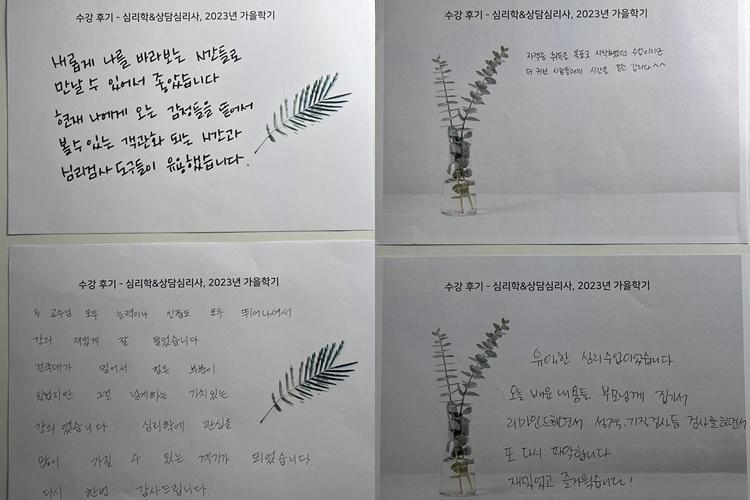 수강 후기 - 심리학&상담심리사, 2023년 가을학기
새롭게 나를 바라보는 시간들로
만날 수 있어서 좋았습니다
현재 나에게 오는 감정들을 뜰어서
볼수 있는 객관화 되는 시간과
심리검사 도구들이 유용했습니다.
수강 후기 - 심리학&상담심리사, 2023년 가을학기
자격증 취득을 목표로 시작했었던 수업이지만
더 귀한 사람들과의 시간을 얻고 갑니다^^
수강 후기 - 심리학&상담심리사, 2023년 가을학기
두 교수님 모두 능력이나 인품도 모두 뛰어나셔서
강의 재밌게 잘 들었습니다.
전주대가 멀어서 힘든 부분이
있었지만 그걸 넘게하는 가치있는
강의였습니다. 심리학에 관심을
많이 가질 수 있는 계기가 되었습니다.
다시 한번 감사드립니다.
수강 후기 - 심리학&상담심리사, 2023년 가을학기
유익한 심리수업이었습니다.
오늘 배운 내용들 부모님께 집가서
리마인드해면서 성격.기질검사등 검사를하면서
또 다시 파악합니다.
재밌었고 즐거웠습니다!